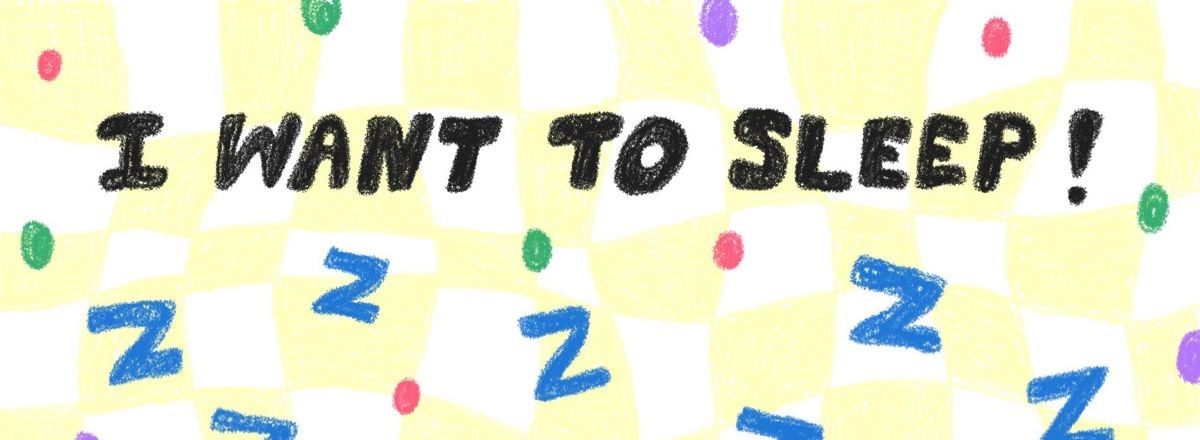 I WANT TO SLEEP!
Z
Z
Z
Z
Z
Z
Z